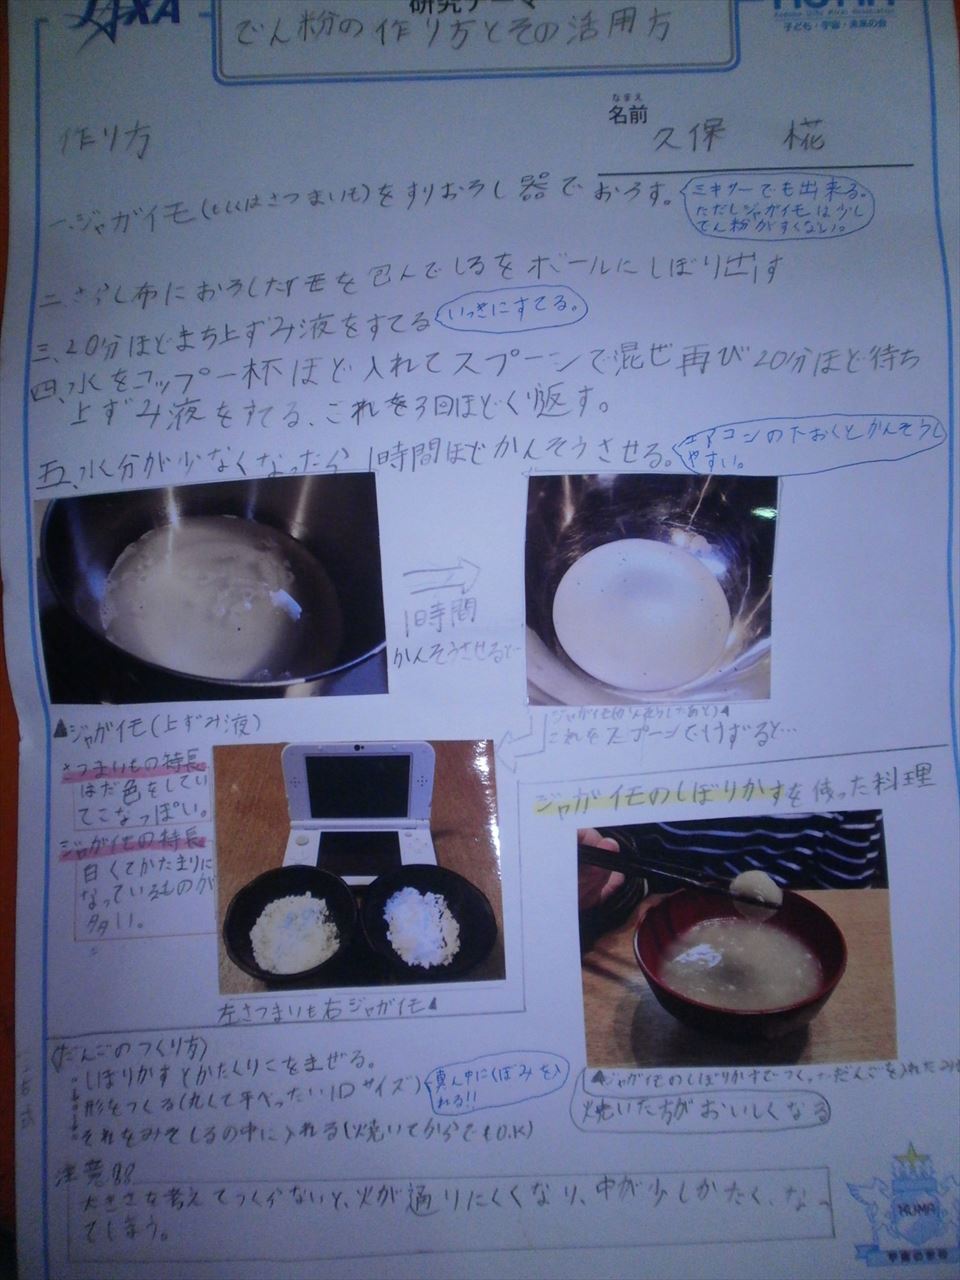 JAXA
研究テーマ
でん粉の作り方とその活用方
KU-MA
子ども・宇宙・未来の会
なまえ
名前 久保 椛
作り方
一、ジャガイモ(もしくはさつまいも)をすりおろし器でおろす。
ミキサーでも出来る。
ただしジャガイモは少し
でん粉がすくない。
二、さらし布におろしたイモを包んでしるをボールにしぼり出す
三、20分ほどまち上ずみ液をすてる
いっきにすてる。
四、水をコップ一杯ほど入れてスプーンで混ぜ再び20分ほど待ち
上ずみ液をすてる、これを3回ほどくり返す。
五、水分が少なくなったら1時間ほどかんそうさせる。
エアコンの下おくとかんそうし
やすい。
1時間
かんそうさせると…
▲ジャガイモ(上ずみ液)
ジャガイモ(かんそうしたあと)▲
これをスプーンでけずると…
さつまいもの特長
はだ色をしてい
てこなっぽい。
ジャガイモの特長
白くてかたまりに
なっているものが
多い。
左さつまいも右ジャガイモ▲
ジャガイモのしぼりかすを使った料理
▲ジャガイモのしぼりかすでつくっただんごを入れたみそ
焼いた方がおいしくなる
(だんごのつくり方)
しぼりかすとかたくりこをまぜる。
形をつくる(丸して平べったい1Dサイズ)
真ん中にくぼみを入
れる!!
それをみそしるの中に入れる(焼いてからでもO.K)
注意!!
大きさを考えてつくらないと、火が通りにくくなり、中が少しかたく、なっ
てしまう。
KU-MA
宇宙の学校